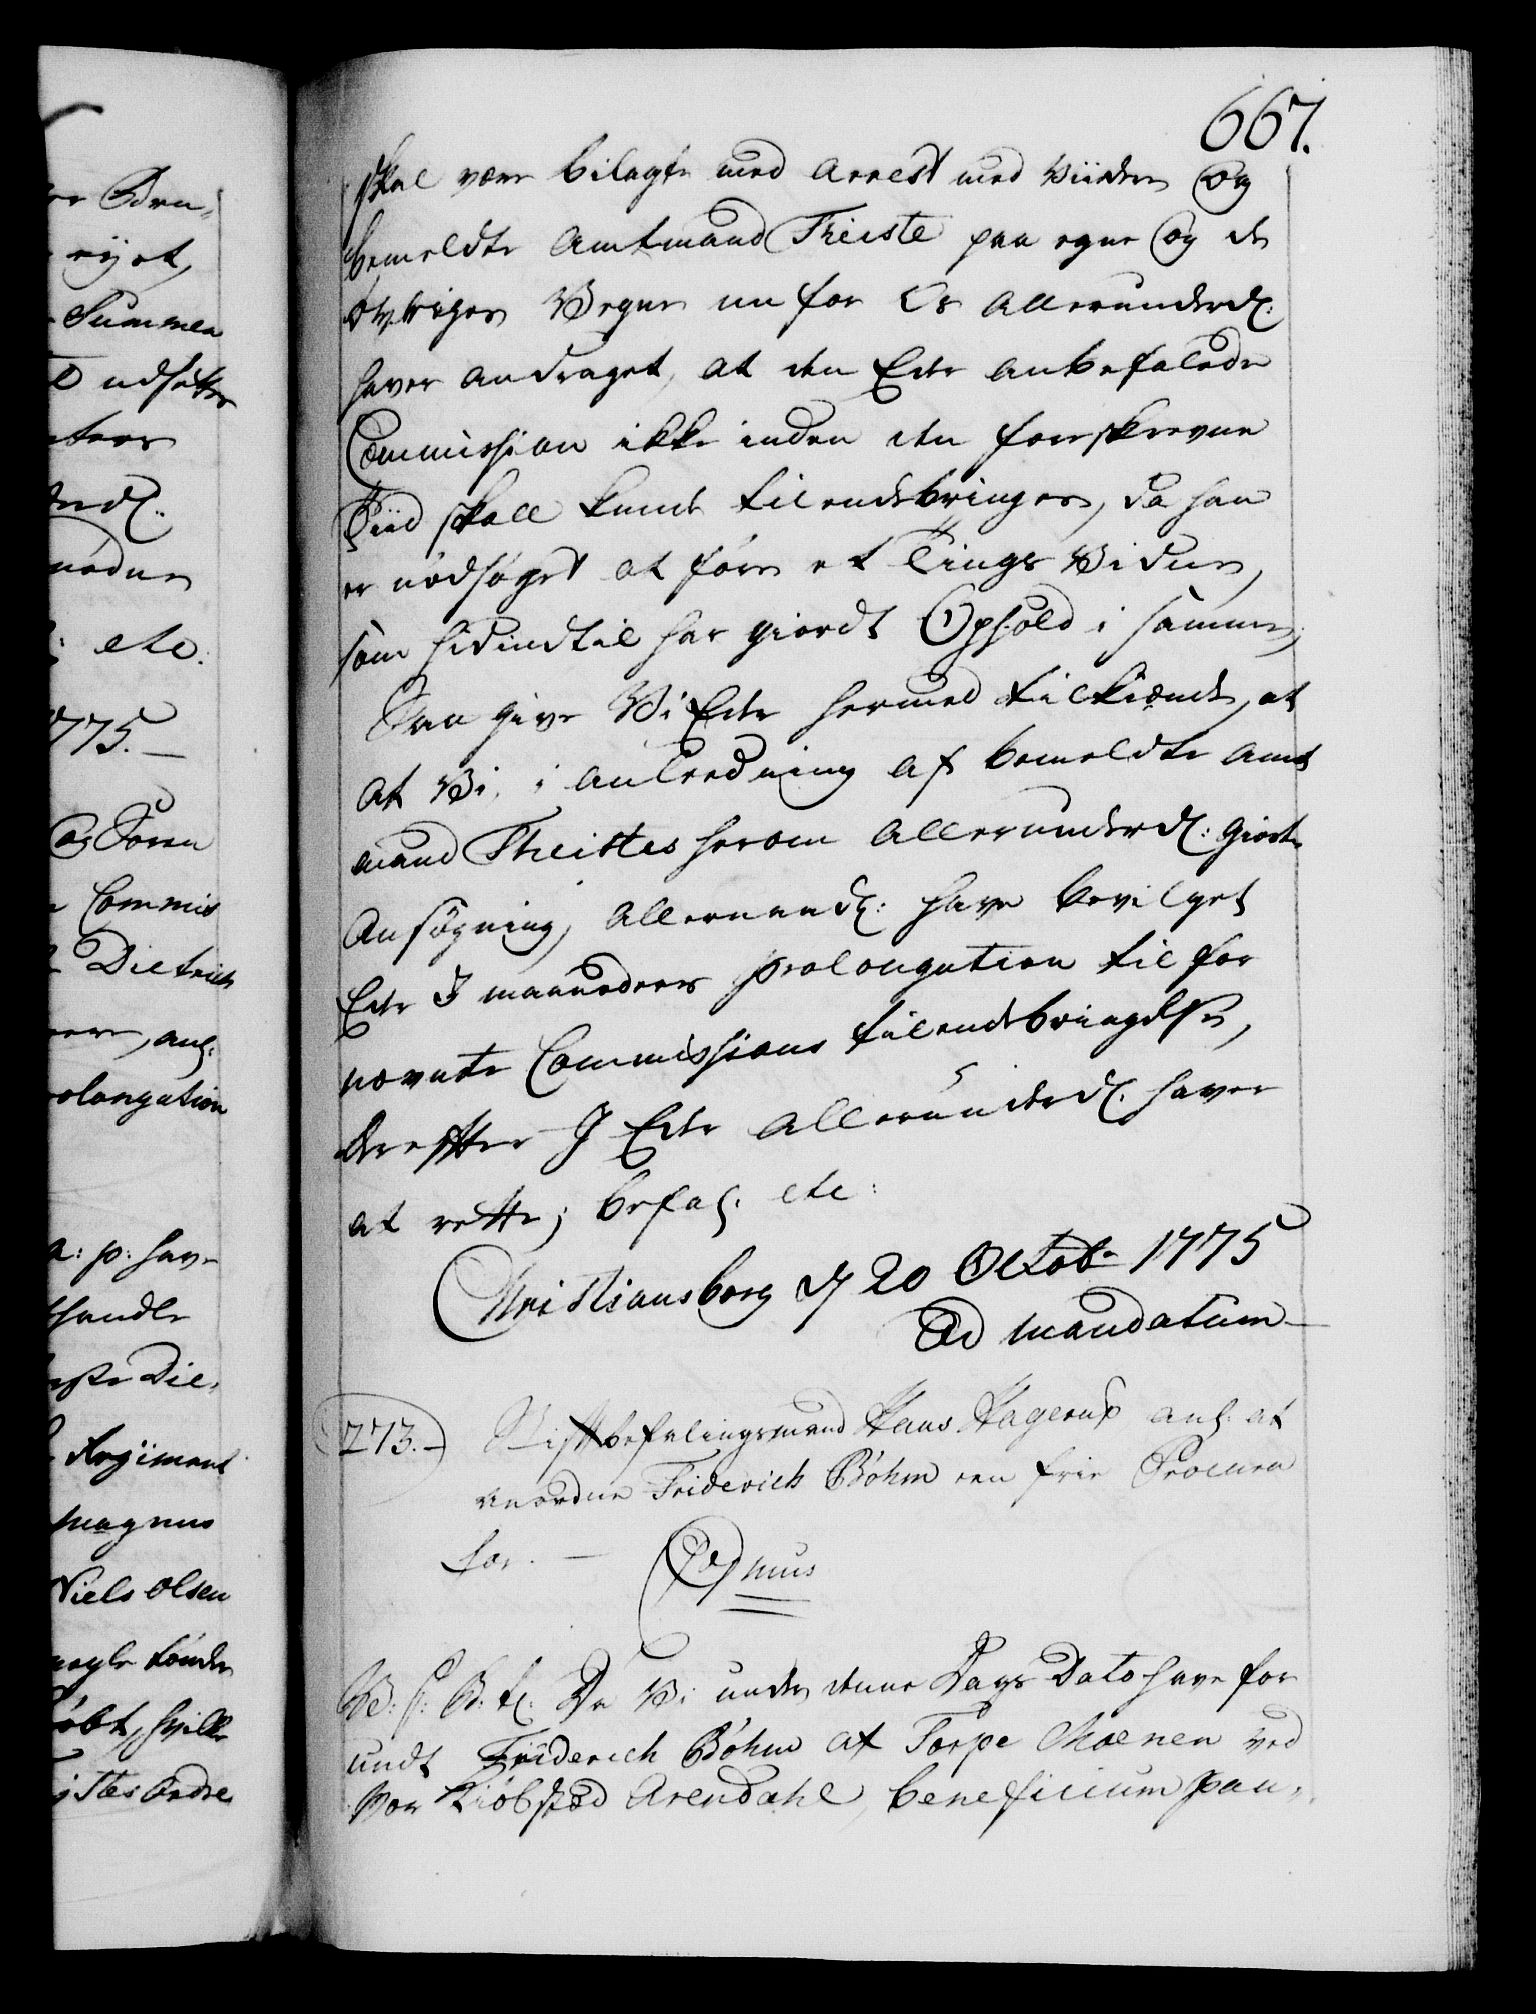 667.
skal være bilagte med Arrest med Viidere Og
bemeldte Amtmand Theiste paa egne Og de
øvriges Vegne nu for Os Allerunderd:
haver andraget, at den Eder anbefalede
Commission ikke inden den foreskrevne
Tiid skall kunde tilendebringes, da han
er nødsaget at føre et Tings Vidne,
som hidindtil har giordt Ophold i samme;
Saa give Vi Eder hermed tilkiende, at
at Vi, i anledning af bemeldte Amt
mand Theistes herom Allerunderd: giorte
Ansøgning, Allernaad: have bevilget
Eder 3 maaneders prolongation til for
nævnte Commissions tilendebringelse,
Derefter I Eder Allerunderd: haver
at rette; befal. etc:
Christiansborg d 20 Octob. 1775
Ad Mandatum
273. Stiftbefalingsmand Hans Hagerup anl: at
anordne Friderich Bøhm een frie Procura
tor. —
V: S: G: T: Da Vi under denne Dags Dato have for
undt Friderich Bøhm af Torpe Moenen ved
Vor Kiøbsted Arendahl, beneficium pau-
er Bran-
nyet,
Summen
udsætter
nødne
etc:
1775. —
Og Søren
Commis
Dietrich
anl:
rolongation
a: p: hav-
handle
Die-
Regiment
Magnus
Niels Olsen
tønder
kiøbt, hvilke
Ordre